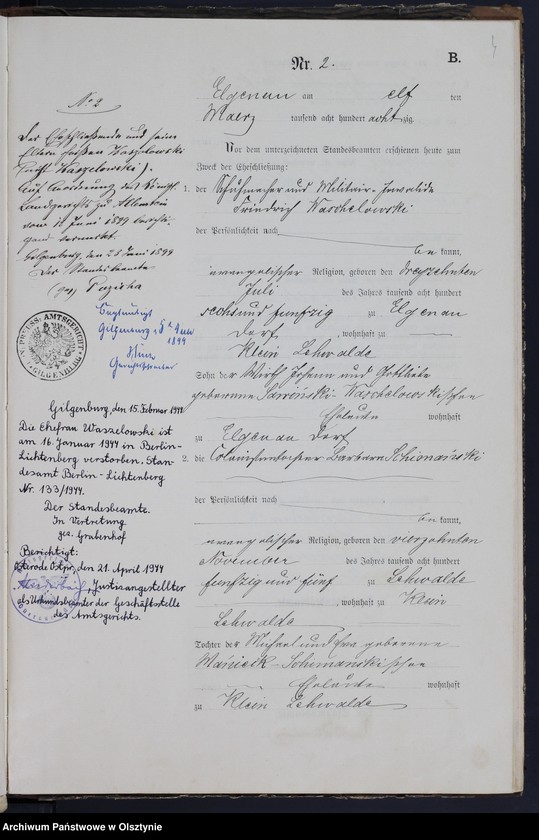 Nr. 2.
B.
4
Elgenau am elf ten
Maerz tausend acht hundert achtzig.
Vor dem unterzeichneten Standesbeamten erschienen heute zum
Zweck der Eheschließung:
1. der Schuhmacher und Militair-Invalide
Friedrich Waschelowski
der Persönlichkeit nach
be kannt,
evangelischer Religion, geboren den dreizehnten
Juli des Jahres tausend acht hundert
sechs und funfzig zu Elgenau
Dorf, wohnhaft zu
Klein Lehwalde
Sohn der Wirth Johann und Gottliebe
geborene Sawinski-Waschelowskischen
Eheleute wohnhaft
zu Elgenau Dorf
2. die Barbara Schimanski
der Persönlichkeit nach
be kannt,
evangelischer Religion, geboren den vierzehnten
November des Jahres tausend acht hundert
funfzig und fünf zu Lehwalde
, wohnhaft zu Klein
Lehwalde
Tochter der Michael und Eva geborene
Schimanskischen
Eheleute wohnhaft
zu Klein Lehwalde
No 2
Der Eheschließende und seine
Eltern heißen Waszelowski
(nicht Waszelowski).
Auf Anordnung des Königl.
Landgerichts zu Allenstein
vom Juni 1899
vermerkt.
Gilgenburg, den 28 Juni 1899
Der Standesbeamte
(gez)
Gilgenburg,
1899
K. PREUSS: AMTSGERICHT
GILGENBURG
Gilgenburg, den 15. Februar 1944
Die Ehefrau Waszelowski ist
am 16. Januar 1944 in Berlin-
Lichtenberg verstorben. Stan-
desamt Berlin-Lichtenberg
Nr. 133/1944.
Der Standesbeamte.
In Vertretung
gez. Grabenhof
Berichtigt:
Osterode Ostpr., den 21. April 1944
Justizangestellter
als Urkundsbeamter der Geschäftsstelle
des Amtsgerichts.
Archiwum Państwowe w Olsztynie